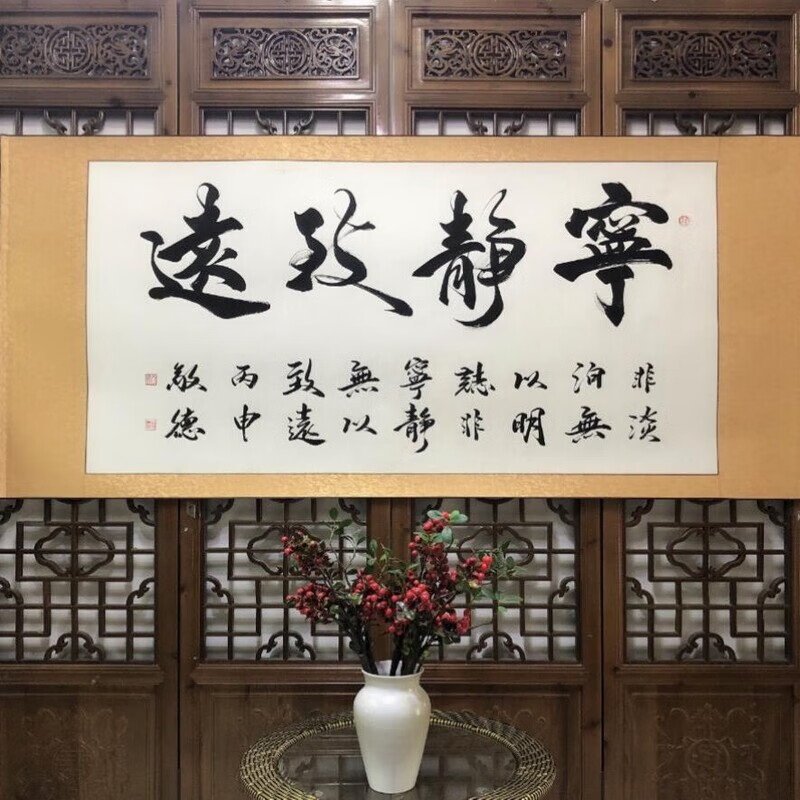 寧靜致遠
非淡
泊無
以明
誌非
寧靜
無以
致遠
丙申
敬德